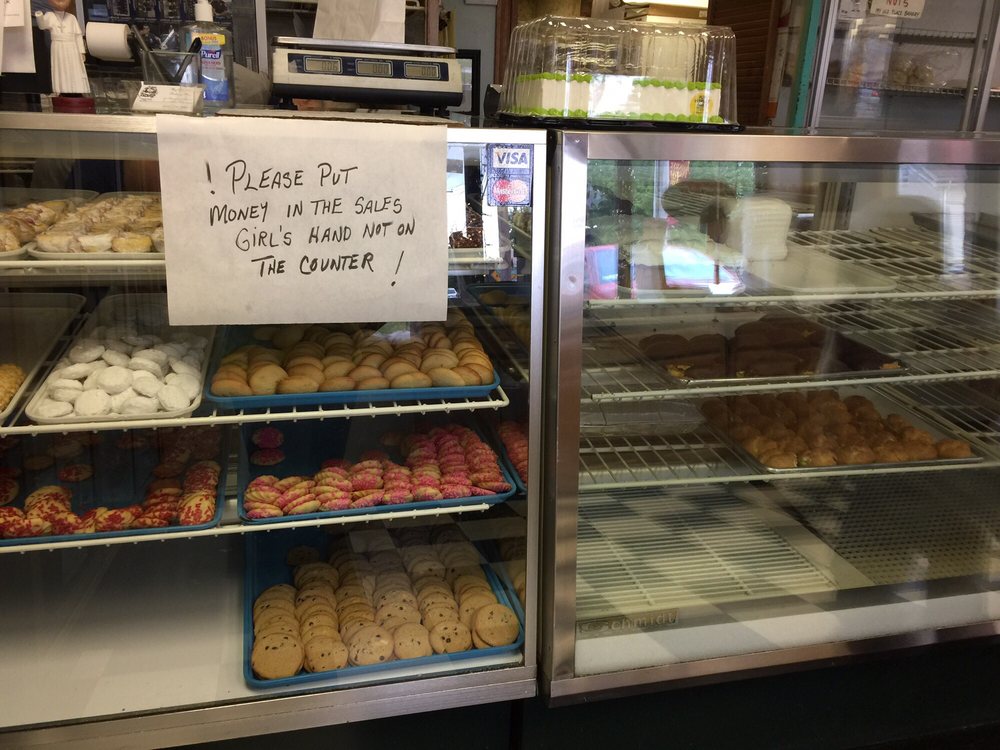 NUTS
Purell
! PLEASE PUT
MONEY IN THE SALES
GIRL'S HAND NOT ON
THE COUNTER !
VISA
MasterCard
schmidt